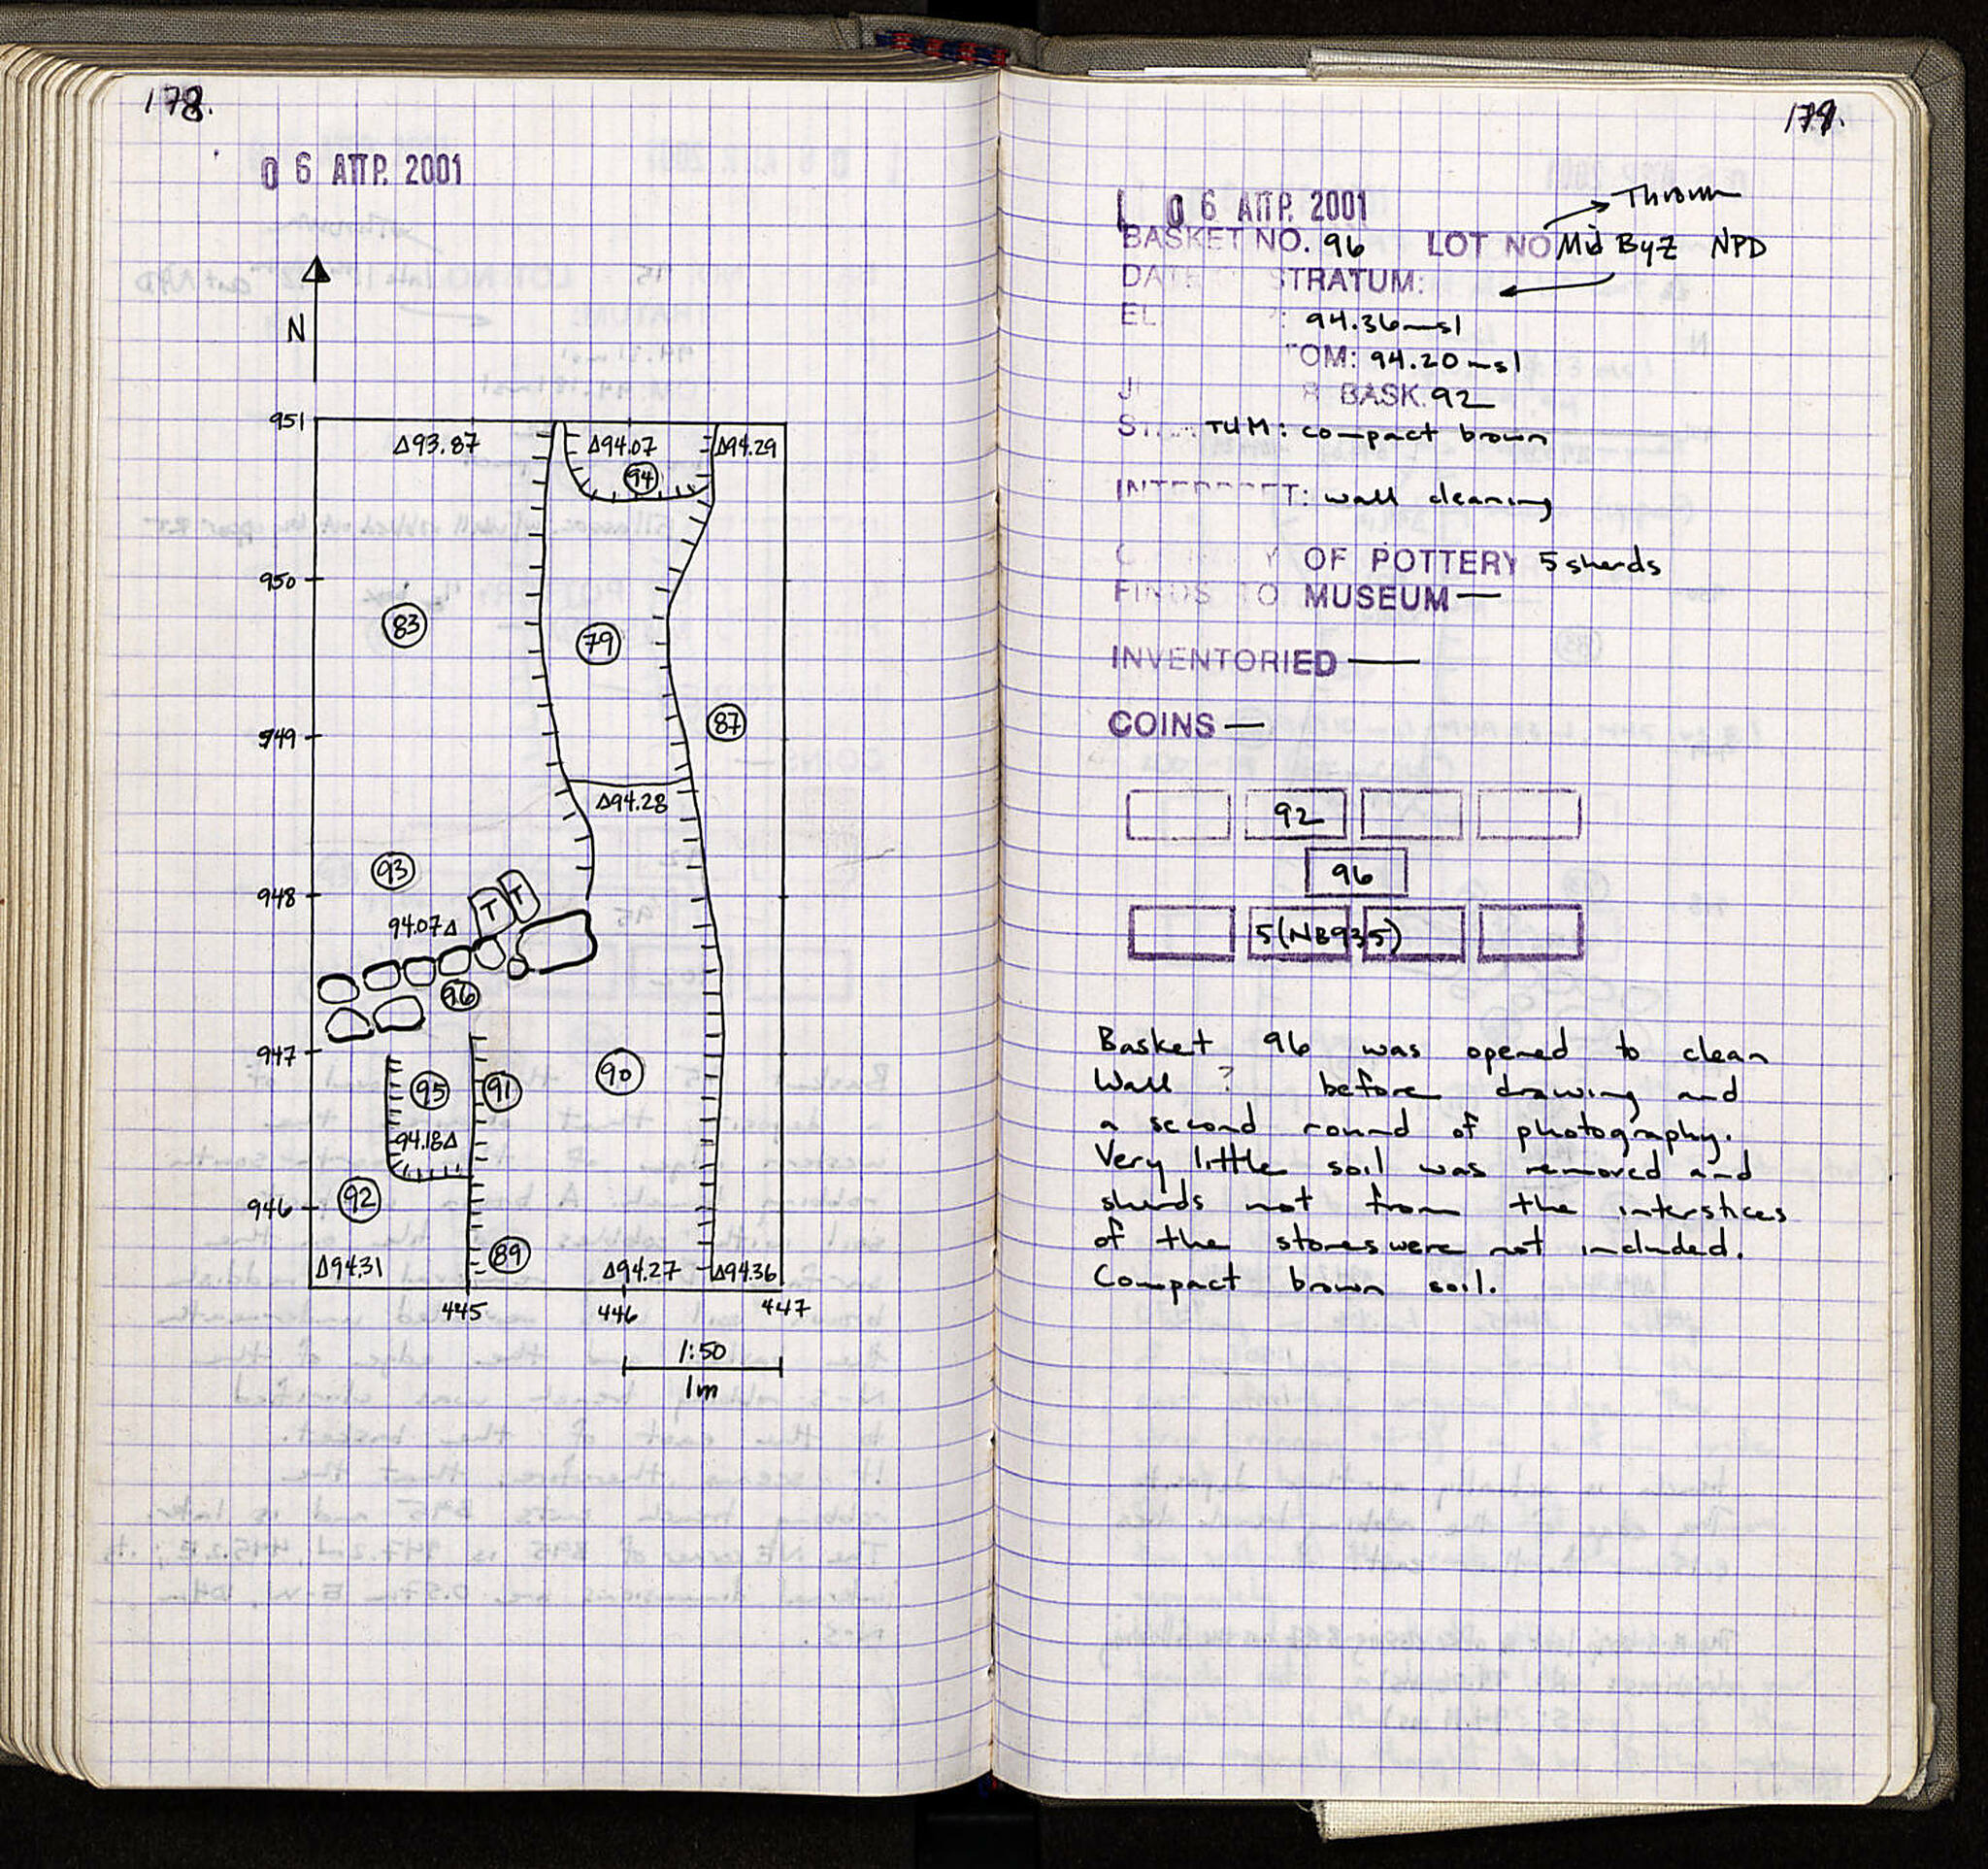 178.
06 ΑΠΡ. 2001
N
951
Δ93.87
Δ94.07
Δ94.29
94
950
83
79
949
87
Δ94.28
93
948
T T
94.07Δ
96
947
95
91
90
94.18Δ
92
946
89
Δ94.31
Δ94.27
Δ94.36
445
446
447
1:50
1m
179.
06 ΑΠΡ. 2001
Thrown
BASKET NO. 96 LOT NO Mid Byz NPD
DATE STRATUM:
EL : 94.36msl
TOM: 94.20msl
BASK. 92
S TUM: compact brown
INTERPRET: wall cleaning
OF POTTERY 5 sherds
FINDS TO MUSEUM —
INVENTORIED —
COINS —
92
96
5(NB935)
Basket 96 was opened to clean
Wall ? before drawing and
a second round of photography.
Very little soil was removed and
sherds not from the interstices
of the stones were not included.
Compact brown soil.